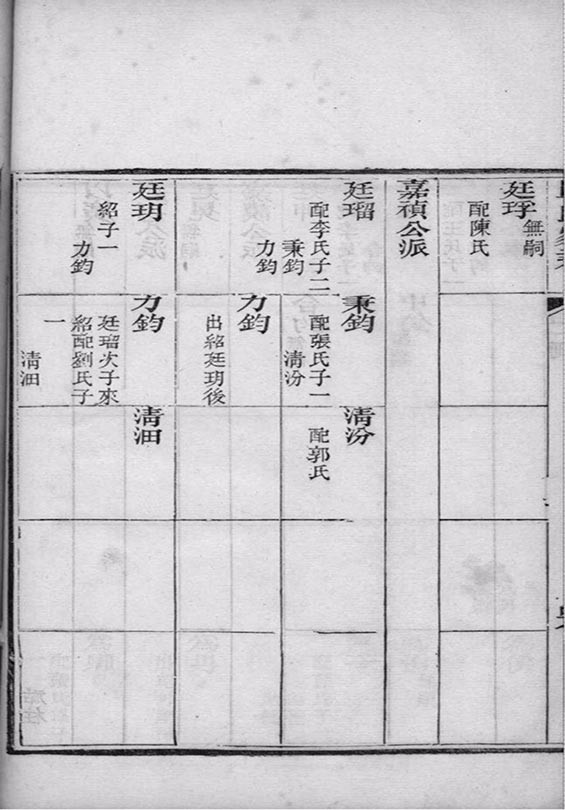 廷琈
無嗣
配陳氏
嘉禎公派
廷瑠
配李氏子二
秉鈞
力鈞
秉鈞
配張氏子一
清汾
清汾
配郭氏
力鈞
出紹廷玥後
廷玥
紹子一
力鈞
力鈞
廷瑠次子來
紹配劉氏子
一
清沺
清沺